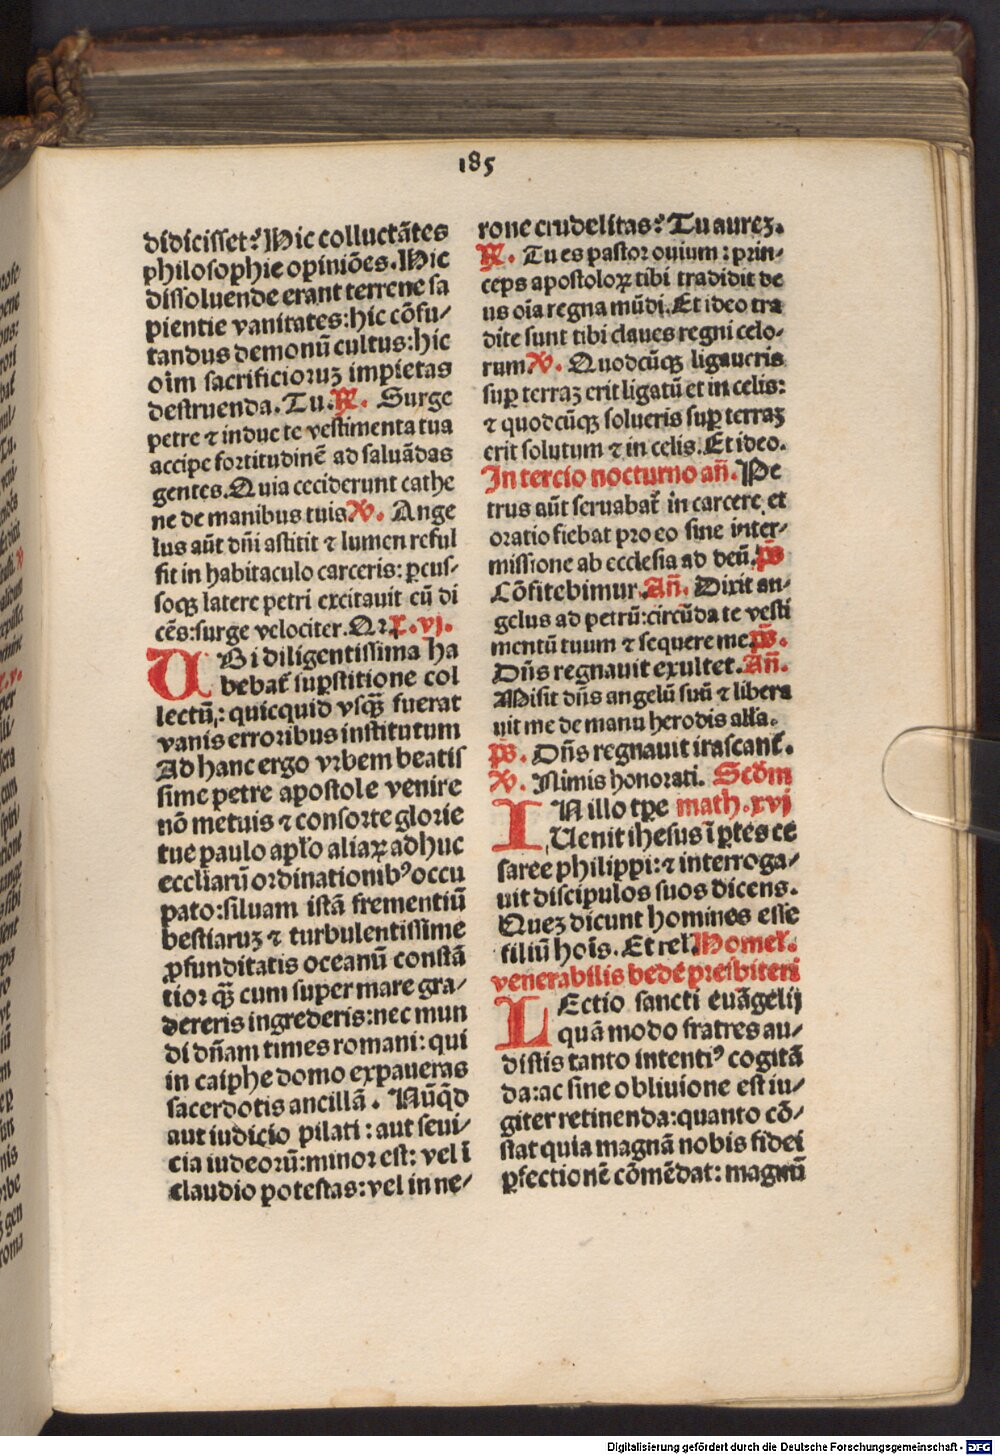 185
didicisset? Hic colluctãtes
philosophie opiniões. Hic
dissoluende erant terrene sa
pientie vanitates: hic cõfu/
tandus demonũ cultus: hic
oĩm sacrificioruꝫ impietas
destruenda. Tu. R. Surge
petre ⁊ indue te vestimenta tua
accipe fortitudinẽ ad saluãdas
gentes. Quia ceciderunt cathe
ne de manibus tuis V. Ange
lus aũt dñi astitit ⁊ lumen reful
sit in habitaculo carceris: ꝑcus-
soqꝫ latere petri excitauit eũ di
cẽs: surge velociter. Qꝛ L. vj.
UBi diligentissima ha
bebat̃ suꝑstitione col
lectũ: quicquid vsqꝫ̃ fuerat
vanis erroribus institutum
Ad hanc ergo vrbem beatis
sime petre apostole venire
nõ metuis ⁊ consorte glorie
tue paulo apl̃o aliaꝝ adhuc
eccl̃iarũ ordinationibꝰ occu
pato: siluam istã frementiũ
bestiaruꝫ ⁊ turbulentissime
ꝓfunditatis oceanũ constã
tior qꝫ̃ cum super mare gra/
dereris ingrederis: nec mun
di dñam times romani: qui
in caiphe domo expaueras
sacerdotis ancillã. Nũqͥd
aut iudicio pilati: aut seui/
cia iudeorũ: minor est: vel ĩ
claudio potestas: vel in ne/
rone crudelitas? Tu aureꝫ.
R. Tu es pastor ouium: prin-
ceps apostoloꝝ tibi tradidit de
us oĩa regna mũdi. Et ideo tra
dite sunt tibi claues regni celo-
rum V. Quodcũqꝫ ligaueris
suꝑ terraꝫ erit ligatũ et in celis:
⁊ quodcũqꝫ solueris suꝑ terraꝫ
erit solutum ⁊ in celis. Et ideo.
In tercio nocturno añ. Pe
trus aũt seruabat̃ in carcere et
oratio fiebat pro eo sine inter/
missione ab ecclesia ad deũ. p̃s
Cõfitebimur. Añ. Dixit an-
gelus ad petrũ: circũda te vesti
mentũ tuum ⁊ sequere me. p̃s.
Dñs regnauit exultet. Añ.
Misit dñs angelũ suũ ⁊ libera
uit me de manu herodis all̃a.
p̃s. Dñs regnauit irascant̃.
V. Nimis honorati. Scd̃m
IN illo tp̃e math. xvj
Uenit ihesus ĩ ꝑtes ce
saree philippi: ⁊ interroga/
uit discipulos suos dicens.
Queꝫ dicunt homines esse
filiũ hoĩs. Et rel̃. Homel̃.
venerabilis bede presbiteri
LEctio sancti euãgelij
quã modo fratres au/
distis tanto intentiꝰ cogitã
da: ac sine obliuione est iu/
giter retinenda: quanto cõ/
stat quia magnã nobis fidei
ꝑfectionẽ cõmẽdat: magnũ
Digitalisierung gefördert durch die Deutsche Forschungsgemeinschaft - DFG